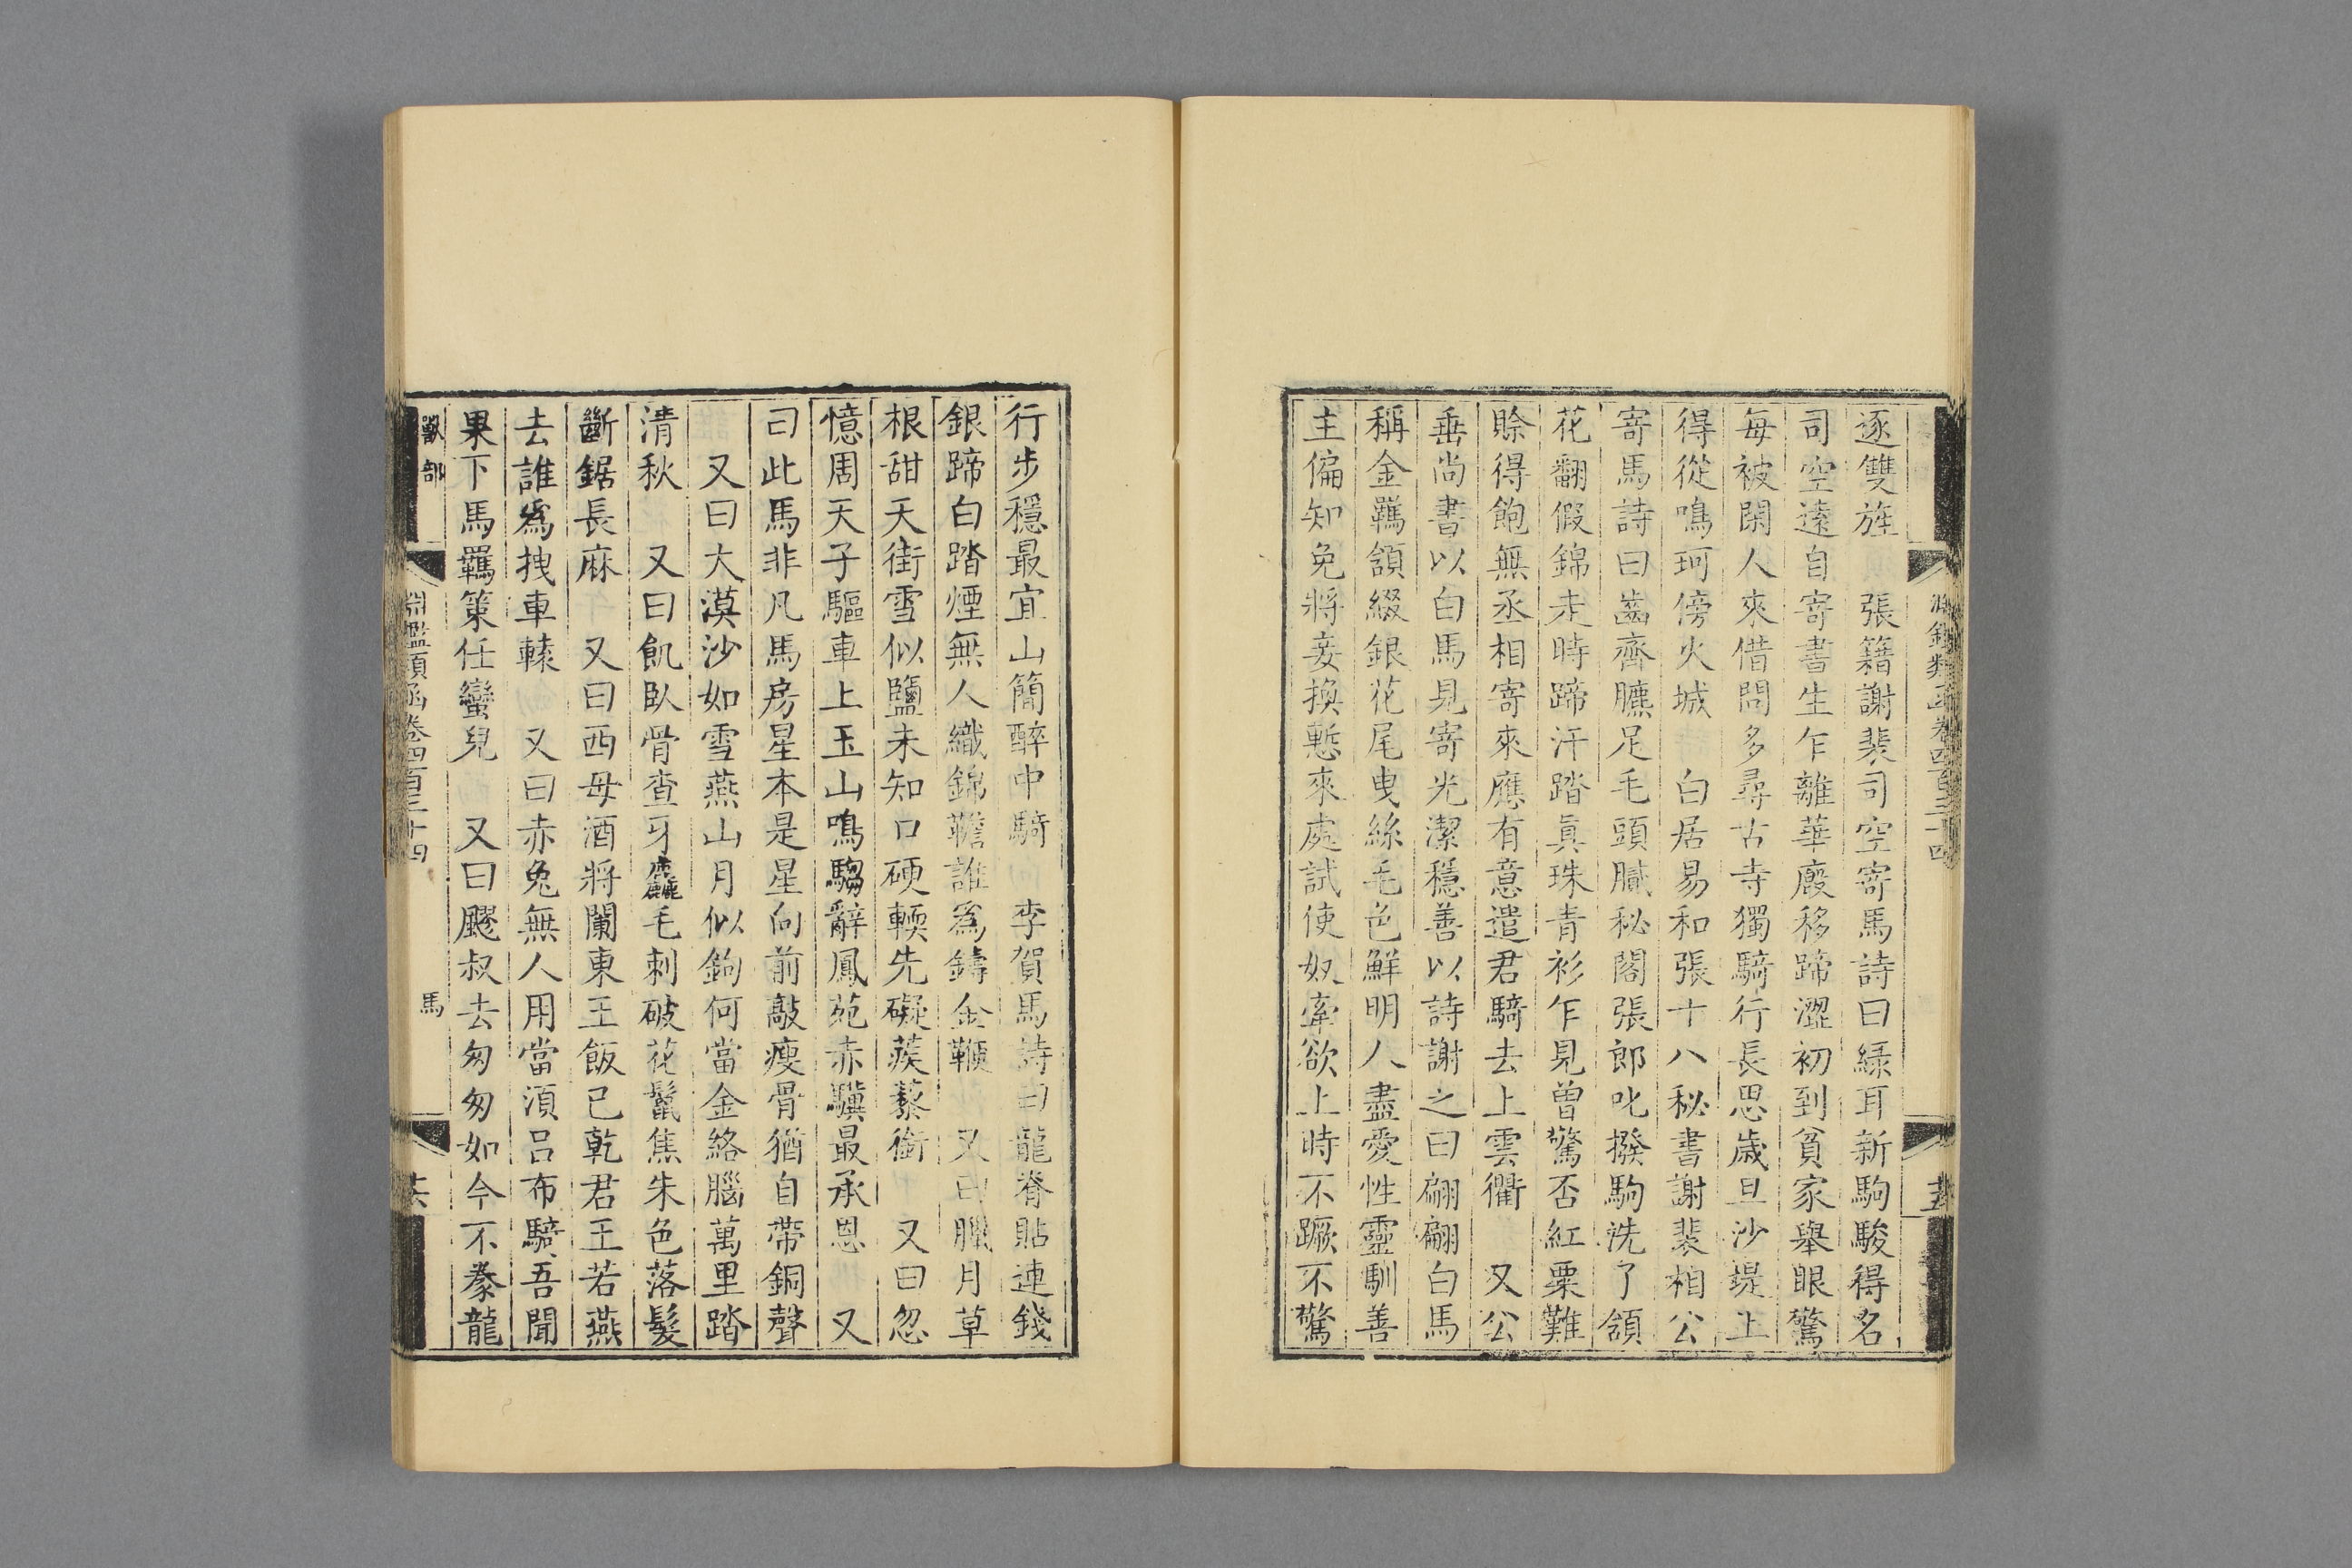 逐雙旌　張籍謝裴司空寄馬詩曰緑耳新駒駿得名
司空遠自寄書生乍離華廄移蹄澀初到貧家舉眼驚
每被閑人來借問多尋古寺獨騎行長思歲旦沙堤上
得從鳴珂傍火城　白居易和張十八秘書謝裴相公
寄馬詩曰齒齊臕足毛頭膩秘閣張郎叱撥駒洗了頷
花翻假錦走時蹄汗踏真珠青衫乍見曾驚否紅粟難
賒得飽無丞相寄來應有意遣君騎去上雲衢　又公
垂尚書以白馬見寄光潔穩善以詩謝之曰翩翩白馬
稱金羈頷綴銀花尾曳絲毛色鮮明人盡愛性靈馴善
主偏知免將妾換慙來處試使奴牽欲上時不蹶不驚
行步穩最宜山簡醉中騎　李賀馬詩曰龍脊貼連錢
銀蹄白踏煙無人織錦韂誰爲鑄金鞭　又曰臘月草
根甜天街雪似鹽未知口硬輭先礙蒺藜銜　又曰忽
憶周天子驅車上玉山鳴騶辭鳳苑赤驥最承恩　又
曰此馬非凡馬房星本是星向前敲瘦骨猶自帶銅聲
又曰大漠沙如雪燕山月似鉤何當金絡腦萬里踏
清秋　又曰飢臥骨查牙麄毛刺破花鬣焦朱色落髮
斷鋸長麻　又曰西母酒將闌東王飯已乾君王若燕
去誰爲拽車轅　又曰赤兔無人用當須呂布騎吾聞
果下馬羈策任蠻兒　又曰飂叔去匆匆如今不豢龍
獸部　淵鑑類函卷四百三十四　馬　共